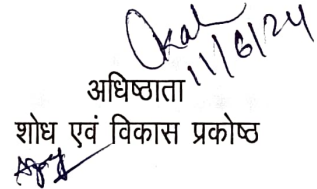 11/6/24
अधिष्ठाता
शोध एवं विकास प्रकोष्ठ